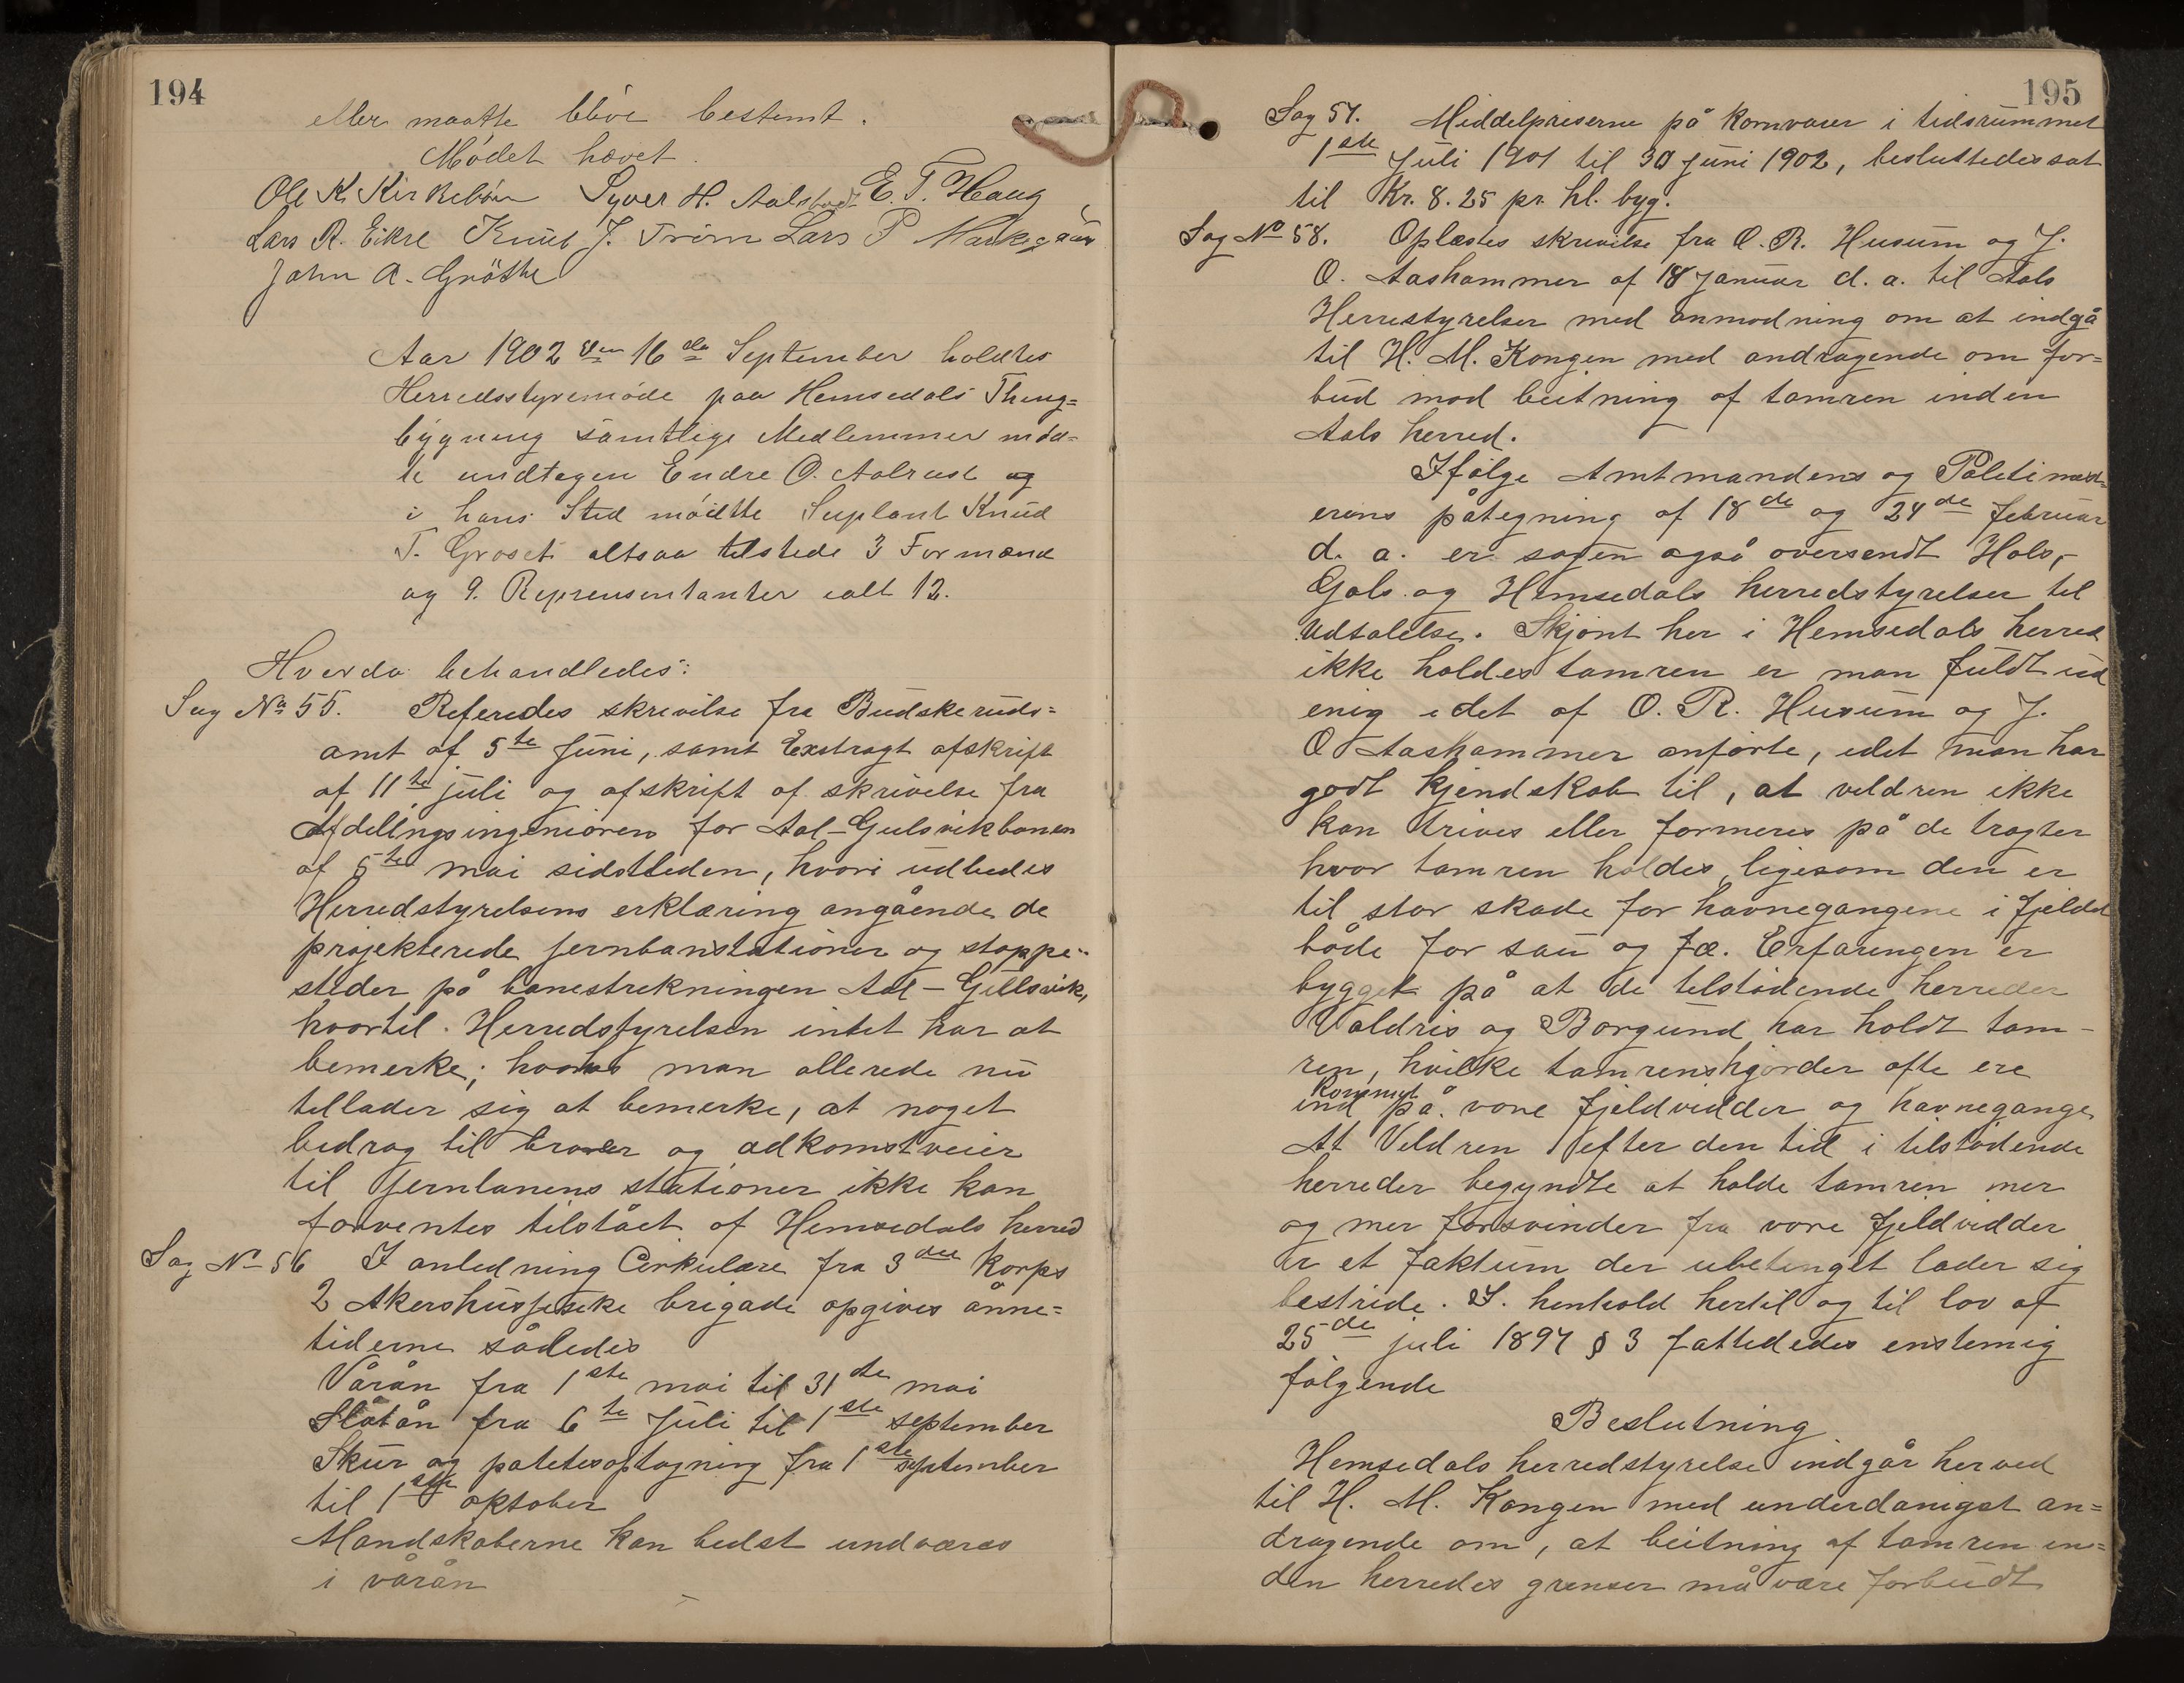 194
eller maatte blive bestemt.
Mødet hævet.
Ole K. Kirkebøen Syver H. Aalstvedt E. T. Haug
Lars R. Eikre Knut J. Trøim Lars P. Markegård
John A. Grøthe
Aar 1902 den 16de September holdtes
Herredsstyremøde paa Hemsedals Thing=
bygning samtlige Medlemmer mød=
te undtagen Endre O. Aalrust og
i hans Sted mødte Suplant Knud
T. Groset altsaa tilstede 3 Formænd
og 9. Reprensentanter ialt 12.
Hverda behandledes:
Sag No 55. Referedes skrivelse fra Budskeruds=
amt af 5te Juni, samt Exstragt afskrift
af 11te juli og afskrift af skrivelse fra
Afdelingsingeniøren for Aal-Gulsvikbanen
af 5te mai sidstleden, hvori udbedes
Herredstyrelsens erklæring angående de
projekterede jernbanstationer og stoppe=
steder på banestrekningen Aal-Gullsvik,
hvortil Herredstyrelsen intet har at
bemerke; hvorhos man allerede nu
tillader sig at bemerke, at noget
bidrag til broer og adkomstveier
til jernbanens stationer ikke kan
forventes tilstået af Hemsedals herred
Sag No 56 I anledning Cirkulære fra 3die Korps
2 Akershusjeske brigade opgives ånne=
tiderne således
Vårån fra 1ste mai til 31te mai
Slåtån fra 6te Juli til 1ste september
Skur og potetesoptagning fra 1ste september
til 1ste oktober
Mandskaberne kan bedst undværes
i vårån
195
Sag 57. Middelpriserne på kornvarer i tidsrummet
1ste Juli 1901 til 30 juni 1902, besluttedes sat
til Kr. 8.25 pr. hl. byg.
Sag No 58. Oplæstes skrivelse fra O. R. Husum og J.
O. Aashammer af 18 januar d. a. til Aals
Herrestyrelser med anmodning om at indgå
til H. M. Kongen med andragende om for=
bud mod beitning af tamren inden
Aals herred.
Ifølge Amtmandens og Politimest=
erens påtegning af 18de og 24de februar
d. a. er sagen også oversendt Hols,-
Gols og Hemsedals herredstyrelser til
Udtalelse. Skjønt her i Hemsedals herred
ikke holdes tamren er man fuldt ud
enig i det af O. R. Husum og J.
O Aashammer anførte, idet man har
godt kjendskab til, at vildren ikke
kan trives eller formeres på de tragter
hvor tamren holdes, ligesom den er
til stor skade for havnegangene i fjeldet
både for sau og fæ. Erfaringen er
bygget på at de tilstødende herreder
Valdris og Borgund har holdt tam-
ren, hvilke tamrenshjorder ofte ere
kommet
ind på vore fjeldvidder og havnegange
At Vildren efter den tid i tilstødende
herreder begyndte at holde tamren mer
og mer forsvinder fra vore fjeldvidder
er et faktum der ubetinget lader sig
bestride. I henhold hertil og til lov af
25de juli 1897 § 3 fattededes enstemig
følgende
Beslutning
Hemsedals herredstyrelse indgår herved
til H. M. Kongen med underdanigst an=
dragende om, at beitning af tamren in=
den herredes grenser må være forbudt